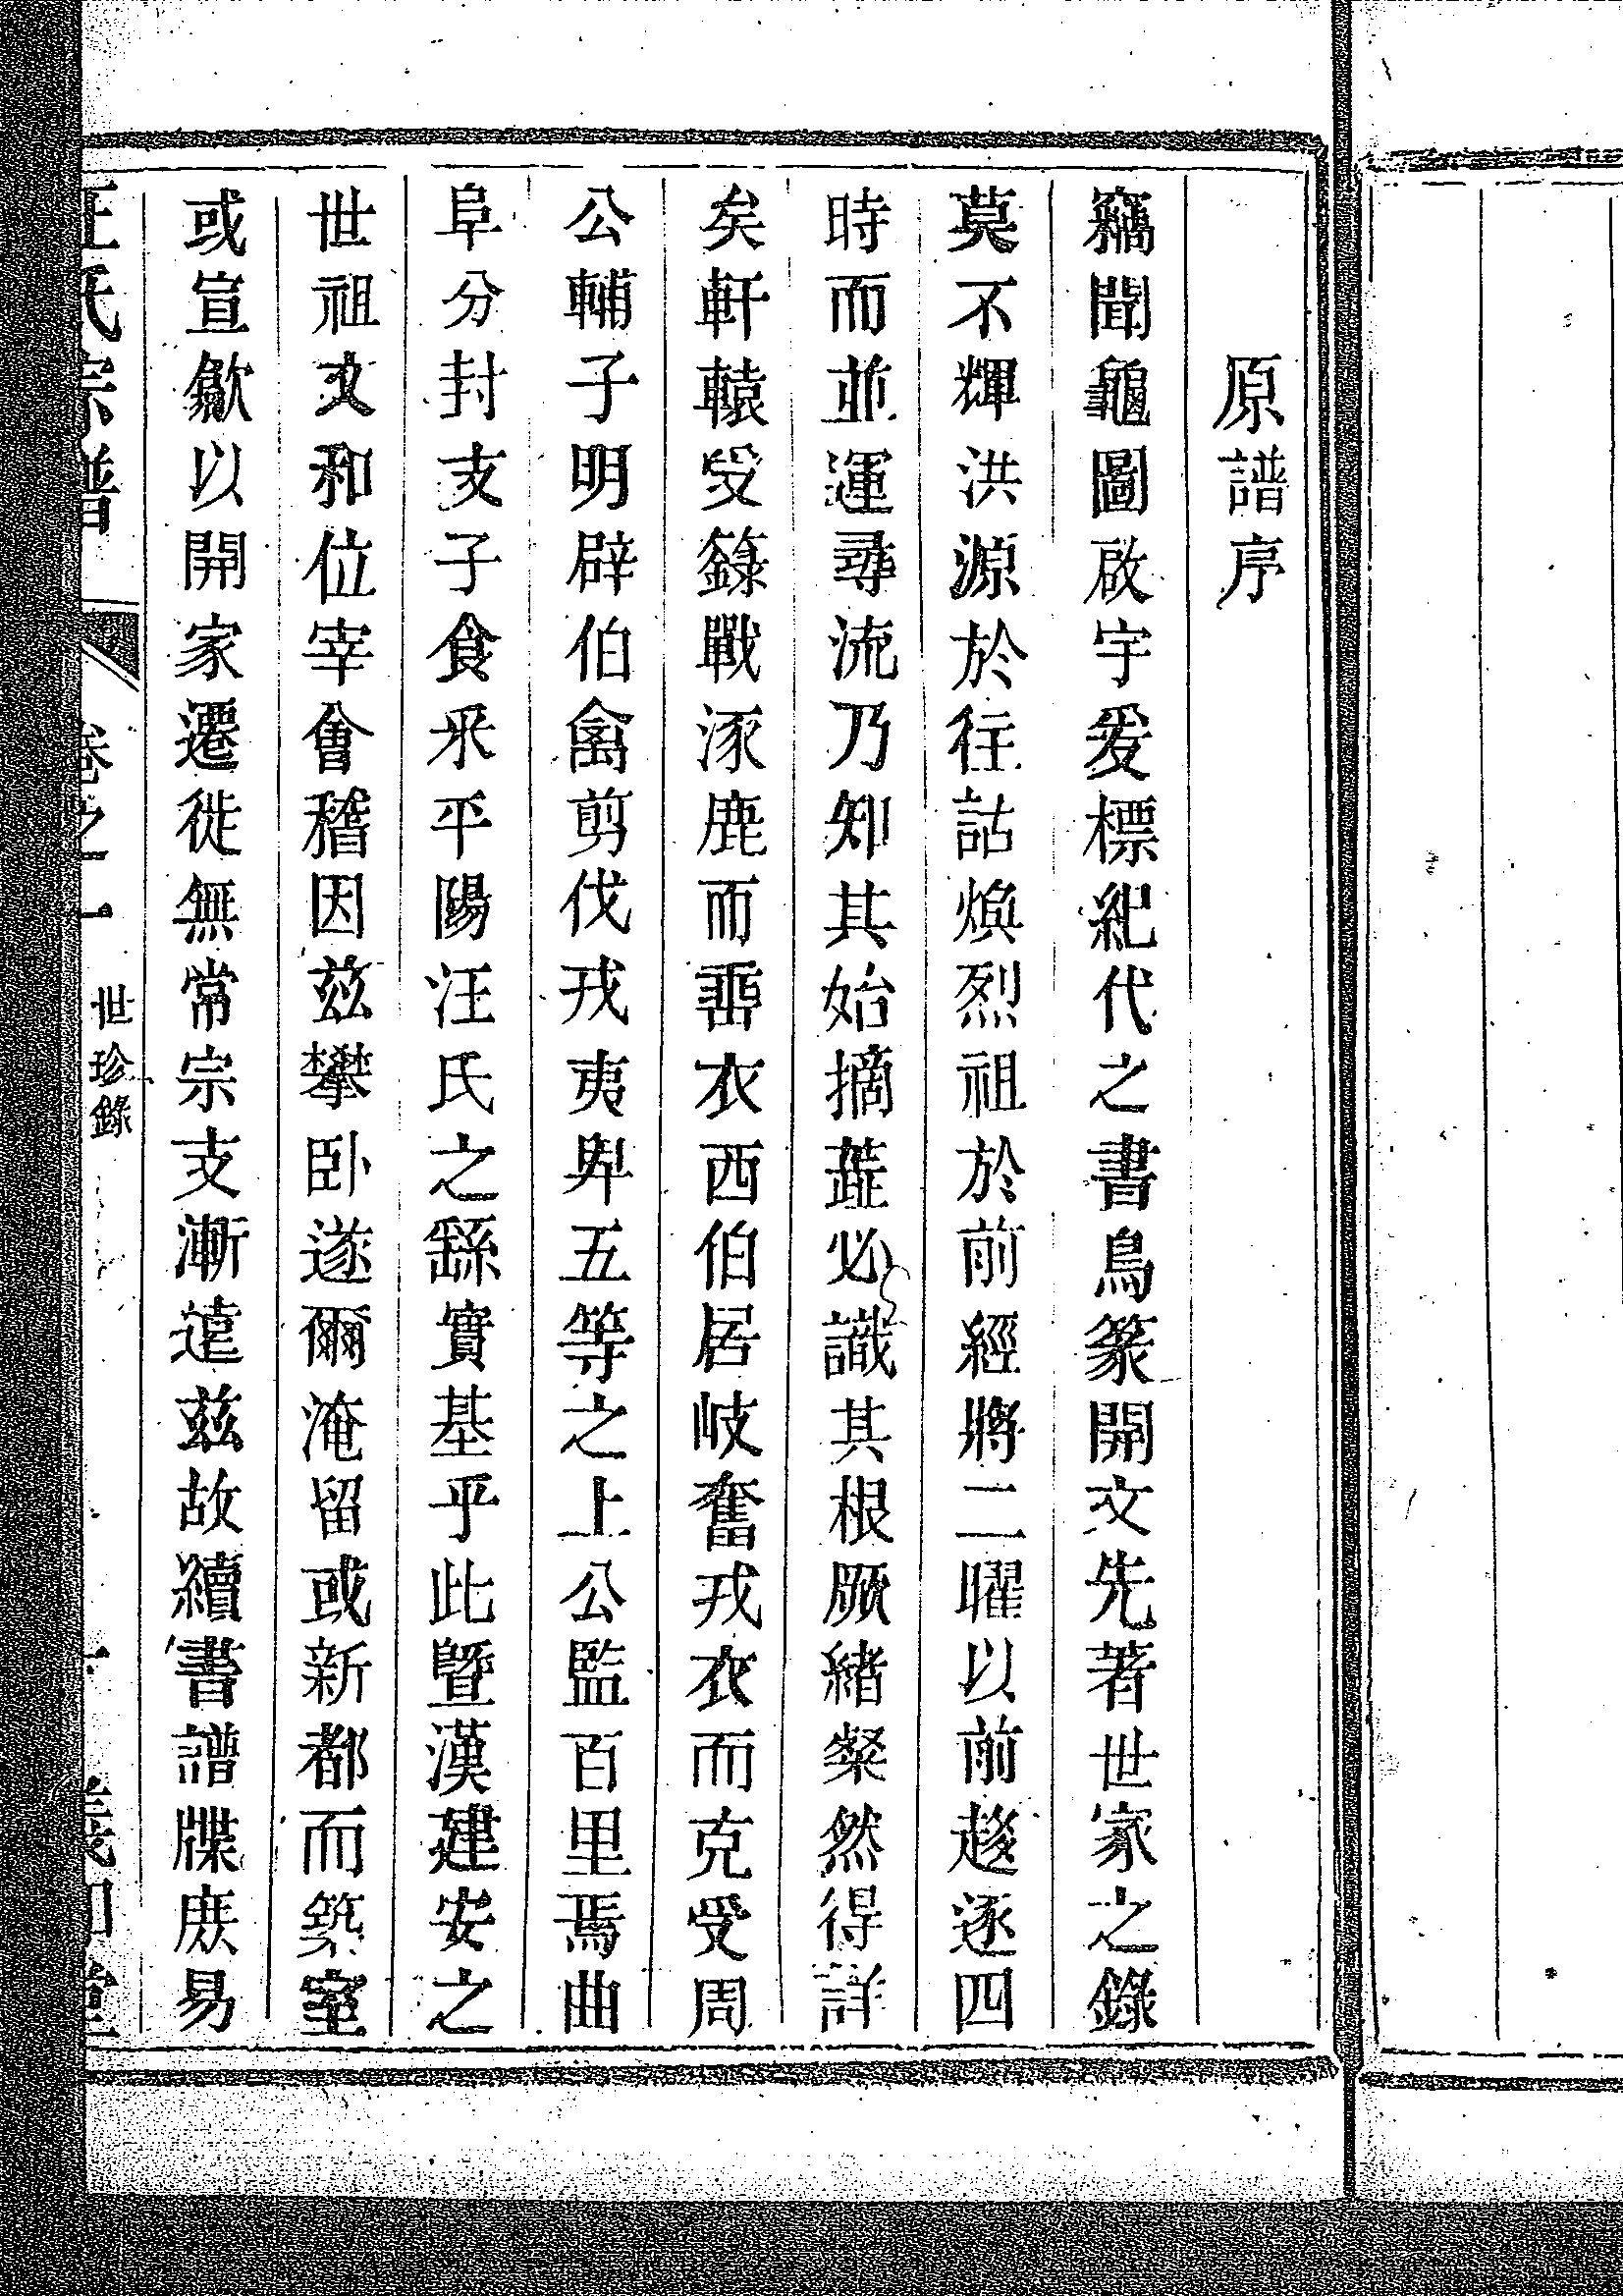 原譜序
竊聞龜圖啟宇爰標紀代之書鳥篆開文先著世家之錄
莫不輝洪源於往詁煥烈祖於前經將二曜以前趍逐四
時而並運尋流乃知其始摘蘂必識其根厥緒粲然得詳
矣軒轅受籙戰涿鹿而垂衣西伯居岐奮戎衣而克受周
公輔子明辟伯禽剪伐戎夷卑五等之上公監百里焉曲
阜分封支子食采平陽汪氏之繇實基乎此曁漢建安之
世祖文和位宰會稽因玆攀卧遂爾淹留或新都而築室
或宣歙以開家遷徙無常宗支漸遠玆故續書譜牒庶易
汪氏宗譜 卷之一 世珍錄 一